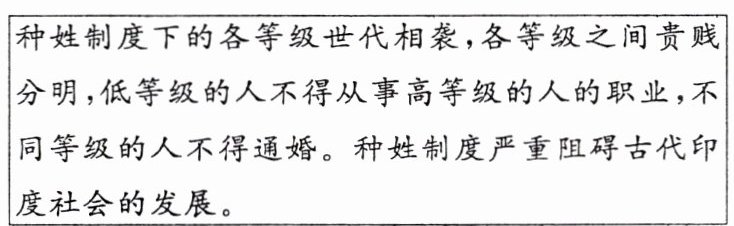 种姓制度下的各等级世代相袭,各等级之间贵贱
分明,低等级的人不得从事高等级的人的职业,不
同等级的人不得通婚。种姓制度严重阻碍古代印
度社会的发展。